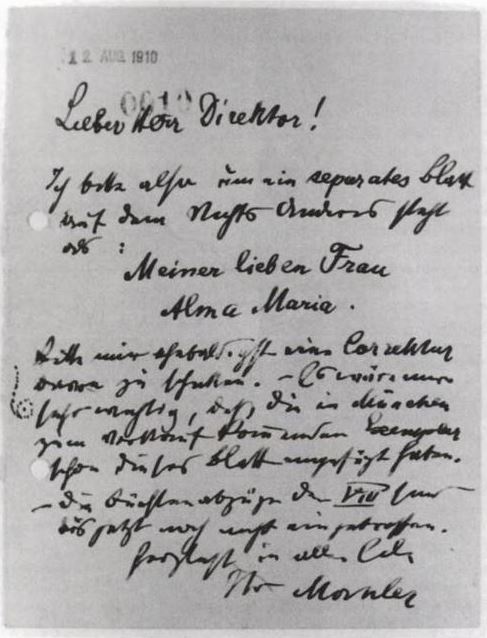 12 AUG 1910
0010
Lieber Herr Direktor!
Ich bitte also um ein separates Blatt
auf dem Nichts Anderes steht
als :
Meiner lieben Frau
Alma Maria.
Bitte mir ehebaldigst eine Correktur
davon zu schicken. – Es wäre mir
sehr wichtig, daß die in München
zum Verkauf kommenden Exemplare
schon dieses Blatt eingefügt haben.
– die Bürstenabzüge der VIII sind
bis jetzt noch nicht eingetroffen.
Herzlichst in aller Eile
Ihr Mahler